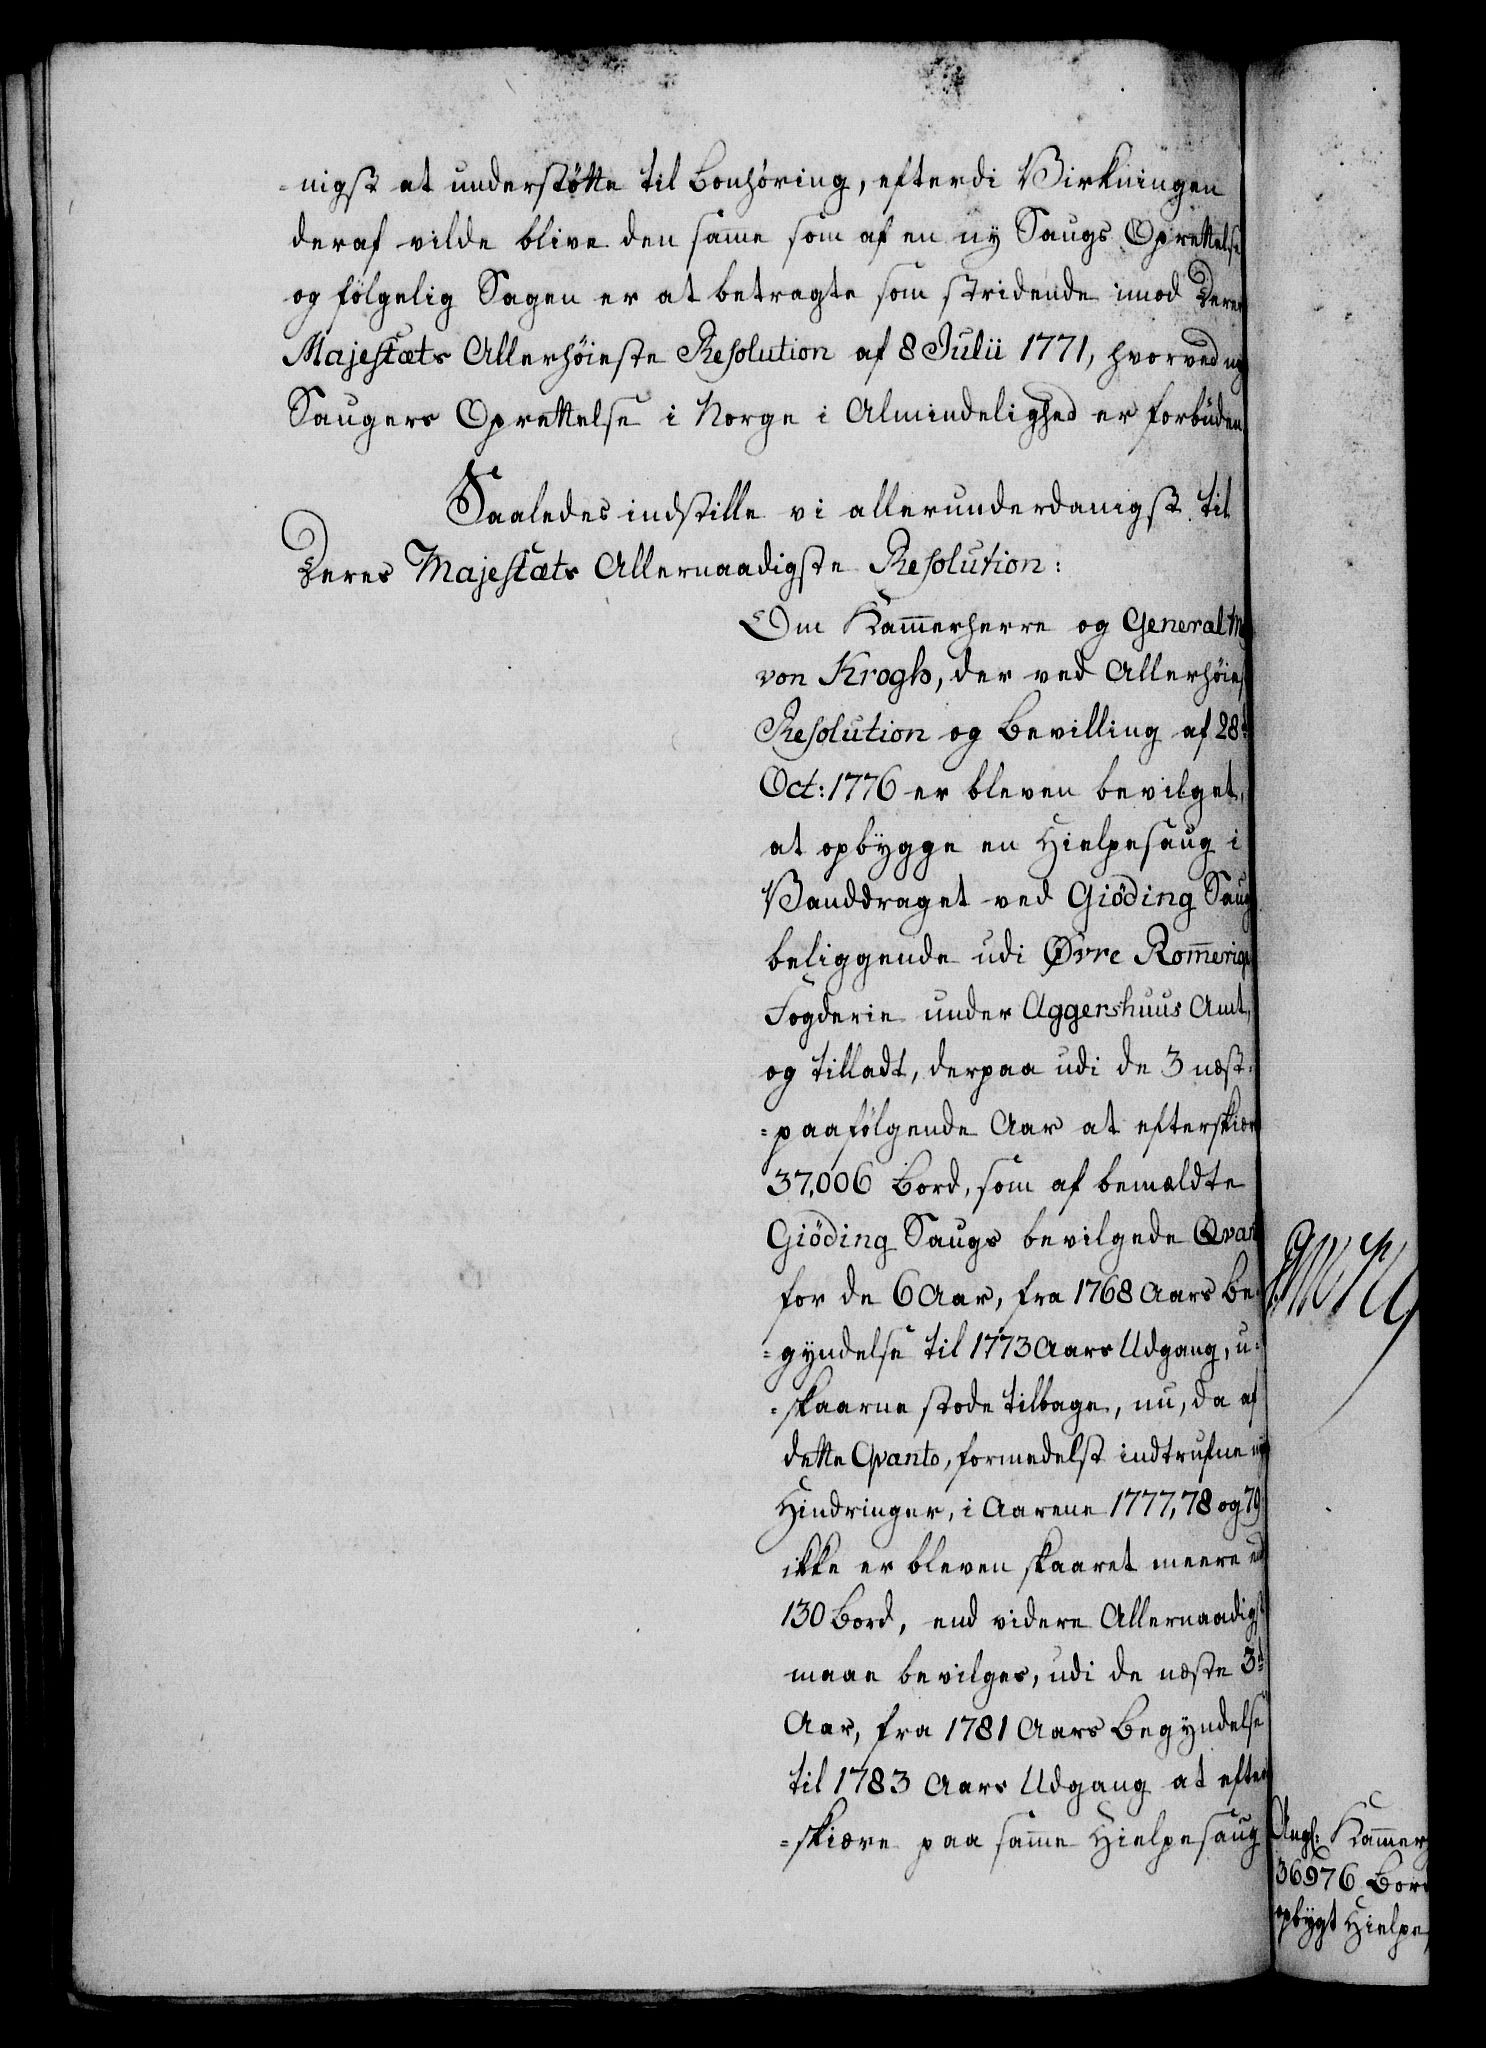 -nigst at understøtte til Bønhøring, efterdi Virkningen
deraf vilde blive den samme som af en ny Saugs Oprettelse
og følgelig Sagen er at betragte som stridende imod Deres
Majestæts Allerhøieste Resolution af 8 Julii 1771, hvorved nye
Saugers Oprettelse i Norge i Almindelighed er forbuden.
Saaledes indstille vi allerunderdanigst til
Deres Majestæts Allernaadigste Resolution:
Om Kammerherre og General M
von Krogh, der ved Allerhøies
Resolution og Bevilling af 28d
Oct: 1776 er bleven bevilget,
at opbygge en Hielpesaug i
Vanddraget ved Giöding Saug
beliggende udi Øvre Romerige
Fogderie under Aggershuus Amt,
og tilladt, derpaa udi de 3 næst-
=paafølgende Aar at efterskiær
37,006 Bord, som af bemældte
Giöding Saugs bevilgede Qvan
for de 6 Aar, fra 1768 Aars Be-
=gyndelse til 1773 Aars Udgang, u-
=skaarne stode tilbage, nu, da af
dette Qvanto, formedelst indtrufne
Hindringer, i Aarene 1777, 78 og 79
ikke er bleven skaaret meere end
130 Bord, end videre Allernaadigst
maae bevilges, udi de næste 3d
Aar, fra 1781 Aars Begyndelse
til 1783 Aars Udgang at efter
=skiære paa samme Hielpesaug
Angl: Kammer
36976 Bord
opbygt Hielpe